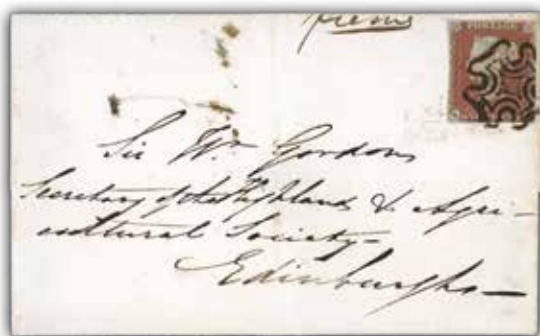 POSTAGE
Sir Wm Gordon
Secretary of the Highland & Agri-
cultural Society-
Edinburgh-